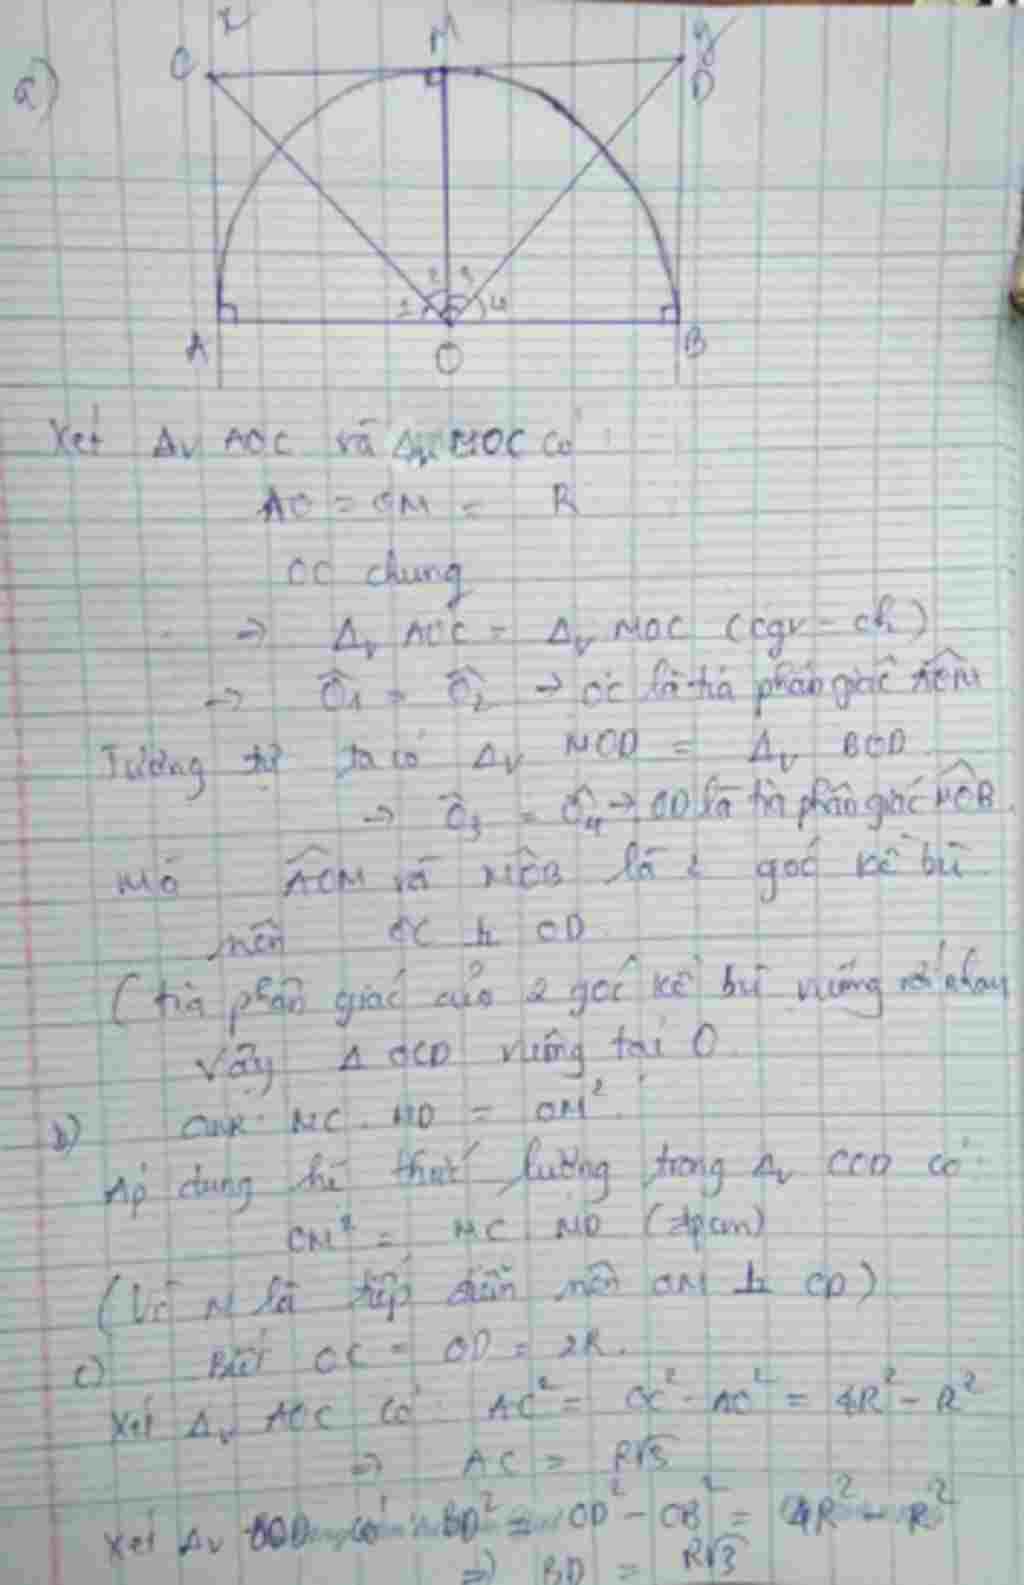 a)
x
y
C
M
D
2 3
1 4
A
O
B
Xét Δv AOC và Δv MOC có :
AO = OM = R
OC chung
=> Δv AOC = Δv MOC (cgv - ch)
-> Ô1 = Ô2 -> OC là tia phân giác AOM
Tương tự ta có Δv MOD = Δv BOD
-> Ô3 = Ô4 -> OD là tia phân giác MOB.
Mà AOM và MOB là 2 góc kề bù
nên OC ⊥ OD
(tia phân giác của 2 góc kề bù vuông với nhau
Vậy Δ OCD vuông tại O.
b) CMR: MC . MD = OM².
Áp dụng hệ thức lượng trong Δv COD có :
OM² = MC MD (đpcm)
(Vì M là tiếp điểm nên OM ⊥ CD)
c) Biết OC = OD = 2R.
Xét Δv AOC có AC² = OC² - AO² = 4R² - R²
=> AC = R√3
Xét Δv BOD có BD² = OD² - OB² = 4R² - R²
=> BD = R√3